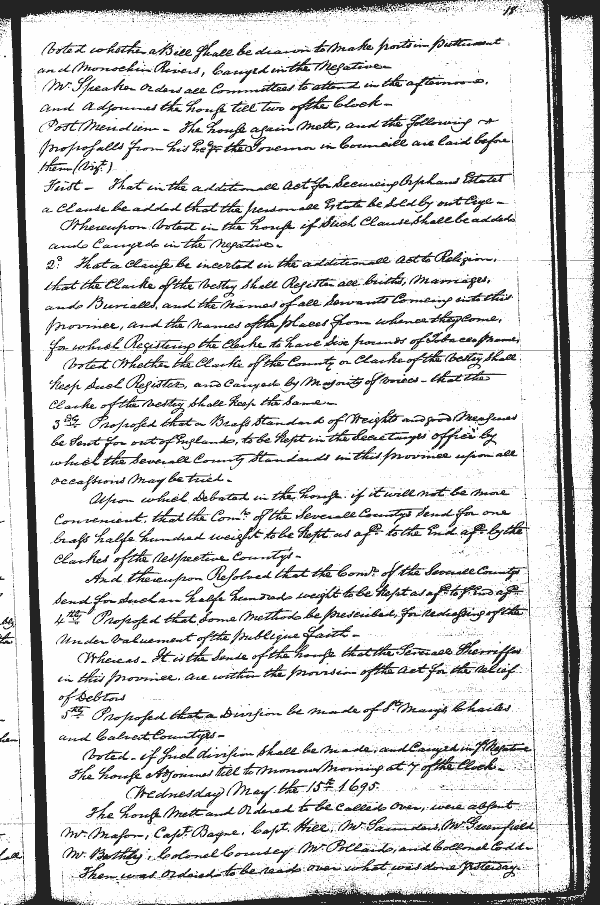 18
Voted whether a Bill shall be drawn to make ports in Puttuxent
and Monockin Rivers, Carryed in the Negative -
Mr. Speaker Orders all Committees to attend in the afternoone,
and Adjournes the house till two of the Clock -
Post Meridiem - The house again Mett, and the following
proposalls from his Excy. the Governor in Councill are laid before
them (vizt.)
First - That in the additionall Act for Securing Orphans Estates
a Clause be added that the personall Estate be Sold by out Crye -
Whereupon Voted in the house if Such Clause shall be added
and Carryed in the Negative -
2d. That a Clause be incerted in the additionall Act to Religion,
that the Clarke of the Vestry shall Register all births, Marriages,
and Burialls, and the Names of all Servants Comeing into this
province, and the Names of the places from whence they Come,
for which Registring the Clarke to have Six pounds of Tobacco
Voted Whether the Clarke of the County or Clarke of the Vestry shall
keep Such Register, and Carryed by Majority of voices - that the
Clarke of the Vestry shall keep the Same -
3dly. Proposed that a Brass Standard of Weights and good Measures
be Sent for out of England, to be kept in the Secretarys Office by
which the Severall County Standards in this province upon all
occassions May be tried -
Upon which Debated in the house if it will not be more
Convenient, that the Comrs. of the Severall Countys Send for one
brass halfe hundred weight to be kept as afd. to the End afd. by the
Clarkes of the respective Countys -
And thereupon Resolved that the Comrs. of the Severall Countys
Send for Such an halfe hundred weight to be kept as afd. to ye. End afd.
4thly. Proposed that Some Method be prescribed, for redressing of the
under valuement of the publique faith -
Whereas - It is the Sense of the house that the Severall Sherriffes
in this province, are within the provision of the Act for the relief
of Debtors
5thly. Proposed that a Division be made of St. Marys Charles
and Calvert Countyes -
Voted - if Such division shall be made, and Carryed in ye. Negative
The house Adjournes till to Morrow Morning at 7 of the Clock -
Wednesday May the 15th. 1695.
The house Mett and Ordered to be Called Over, were absent
Mr. Mason, Capt. Bayne, Capt. Hill, Mr. Saunders, Mr. Greenfield
Mr. Colonel Coursey Mr. Pollard, and Collonel Codd -
Then was Ordered to be read over what was done yesterday